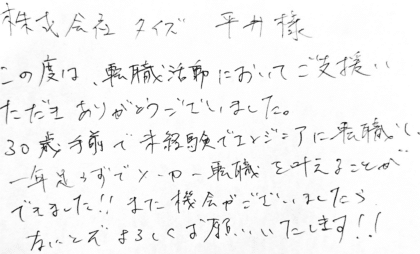 株式会社 タイズ 平井様
この度は、転職活動においてご支援い
ただき ありがとうございました。
30歳手前で未経験でエンジニアに転職し、
一年足らずでメーカー転職を叶えることが
できました!! また機会がございましたら
なにとぞ よろしくお願いいたします!!